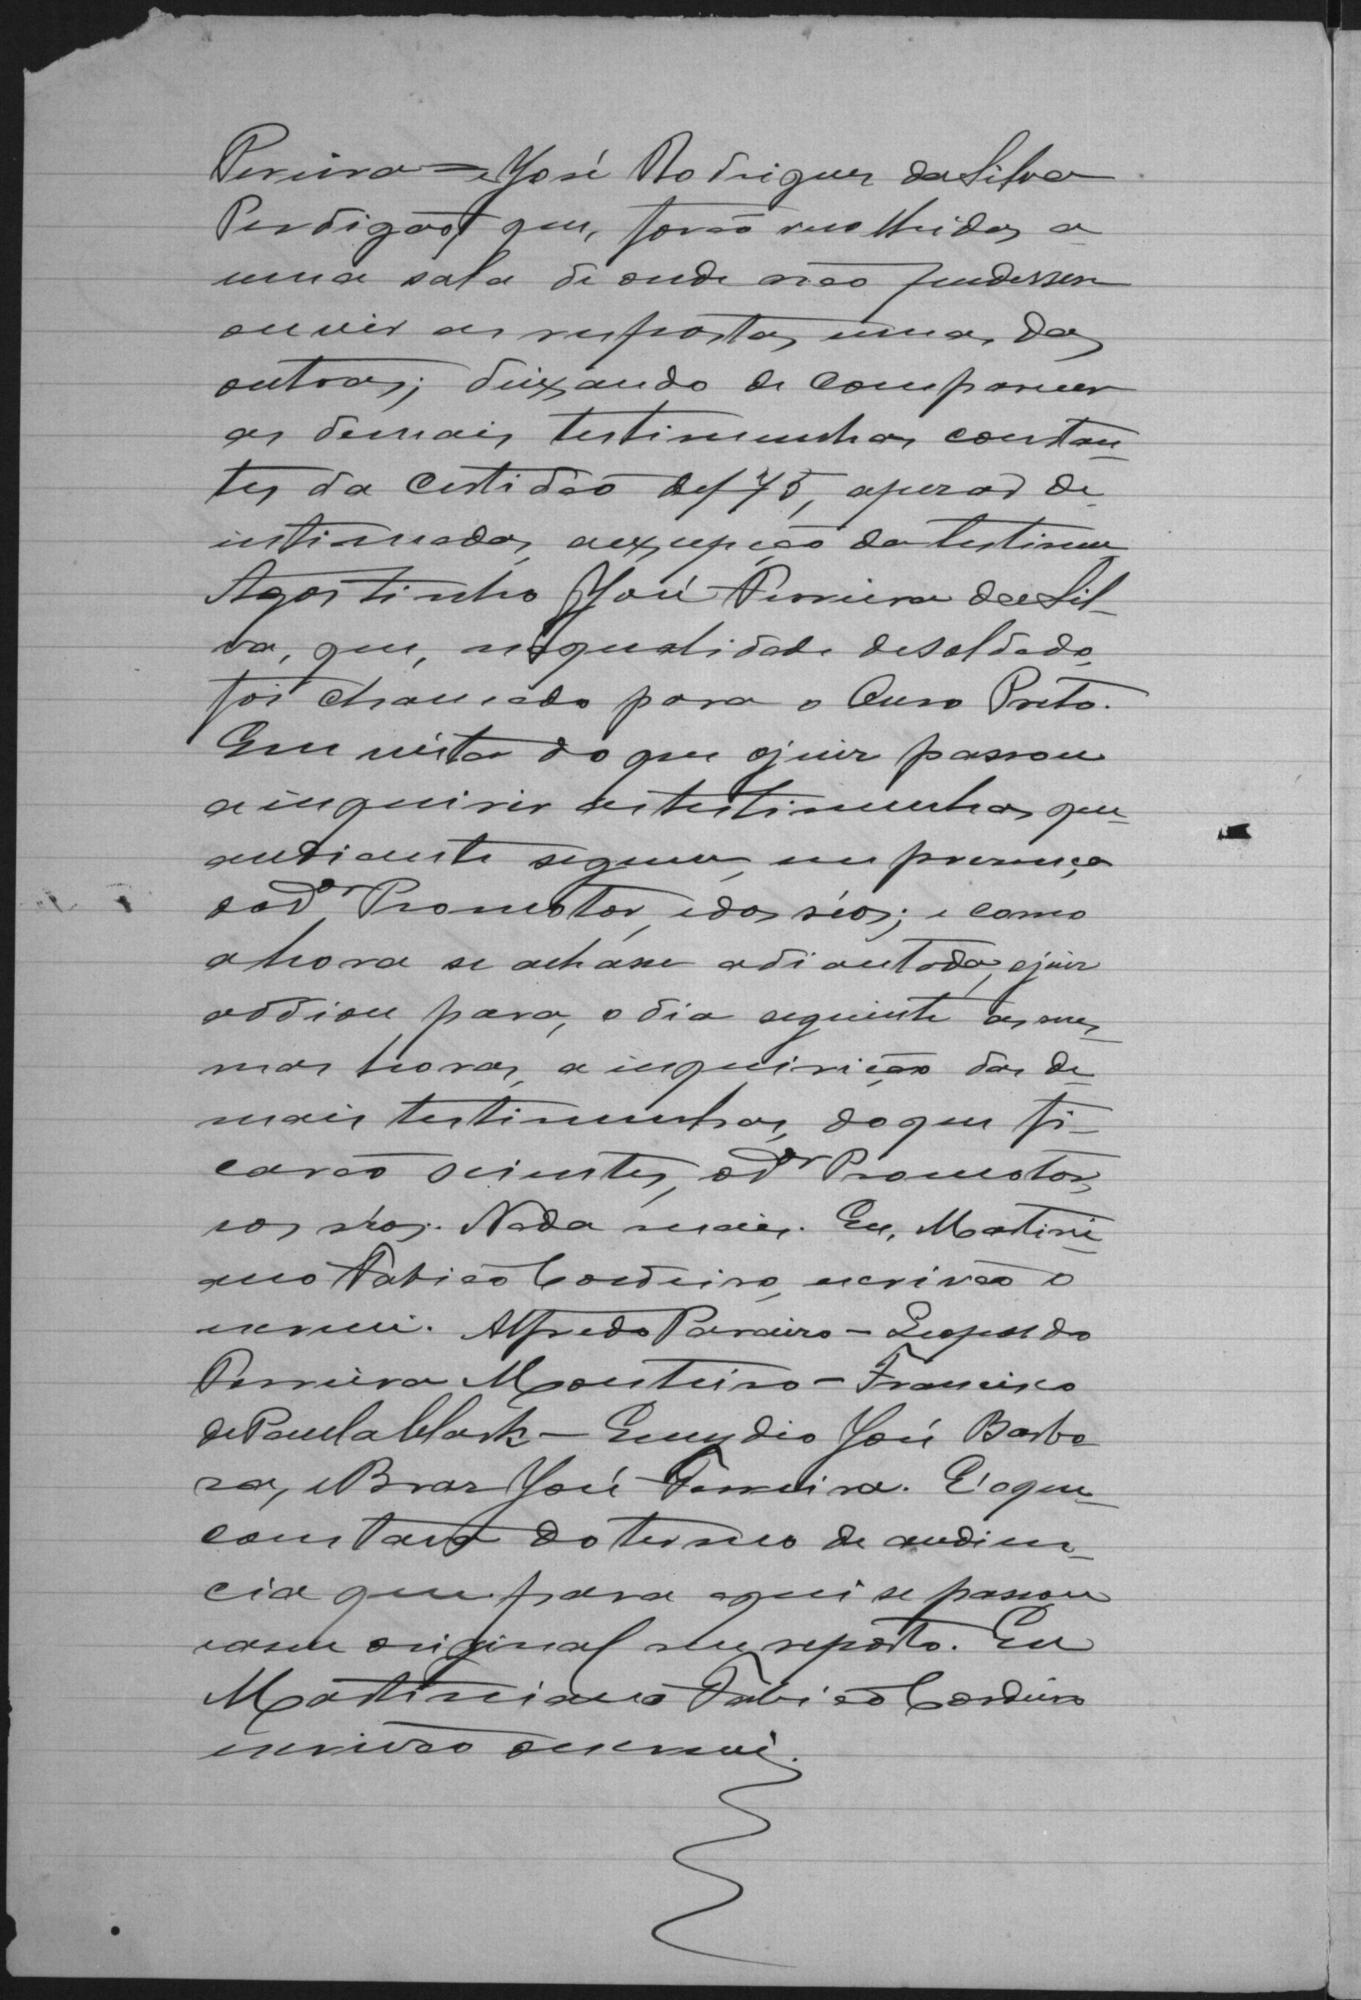 Pereira = e José Rodrigues da Silva
Perdigão, que, forão recolhidas a
uma sala de onde não pudessem
ouvir as respostas umas das
outras; deixando de comparecer
as demais testimunhas constan-
tes da certidão de f 75, apezar de
intimadas, a exepção da testimua
Agostinho José Ferreira da Sil-
va, que, na qualidade de soldado,
foi chamado para o Ouro Preto.
Em vista do que o juiz passou
a inquirir as testimunhas que
andiante seguem, em presença
do dr Promotor, e dos réos; e como
a hora se achasse adiantada, o juiz
addiou para, o dia seguinte as mes-
mas horas, a inquirição das de-
mais testimunhas, do que fi-
carão scientes, o dr Promotor,
e os réos. Nada mais. Eu, Martini-
ano Fabião Cordeiro, escrivão o
escrevi. Alfredo Paraiso – Leopoldo
Ferreira Monteiro – Francisco
de Paula Clark – Emydio José Barbo
za, e Braz José Ferreira. É o que
constava do termo de audien-
cia que para aqui se passou
e a seu original me reporto. Eu
Martiniano Fabião Cordeiro
escrivão o escrevi.